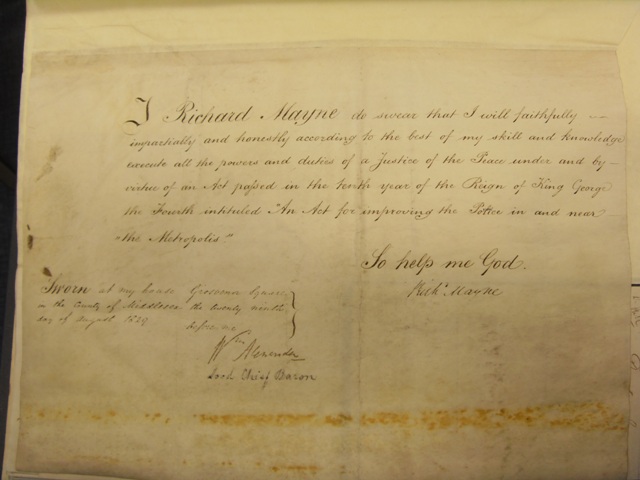 I Richard Mayne do swear that I will faithfully
impartially and honestly according to the best of my skill and knowledge
execute all the powers and duties of a Justice of the Peace under and by
virtue of an Act passed in the tenth year of the Reign of King George
the Fourth intituled "An Act for improving the Police in and near
the Metropolis."
So help me God.
Richd. Mayne
Sworn at my house Grosvenor Square
in the County of Middlesex the twenty ninth
day of August 1829
before me
Wm Alexander
Lord Chief Baron